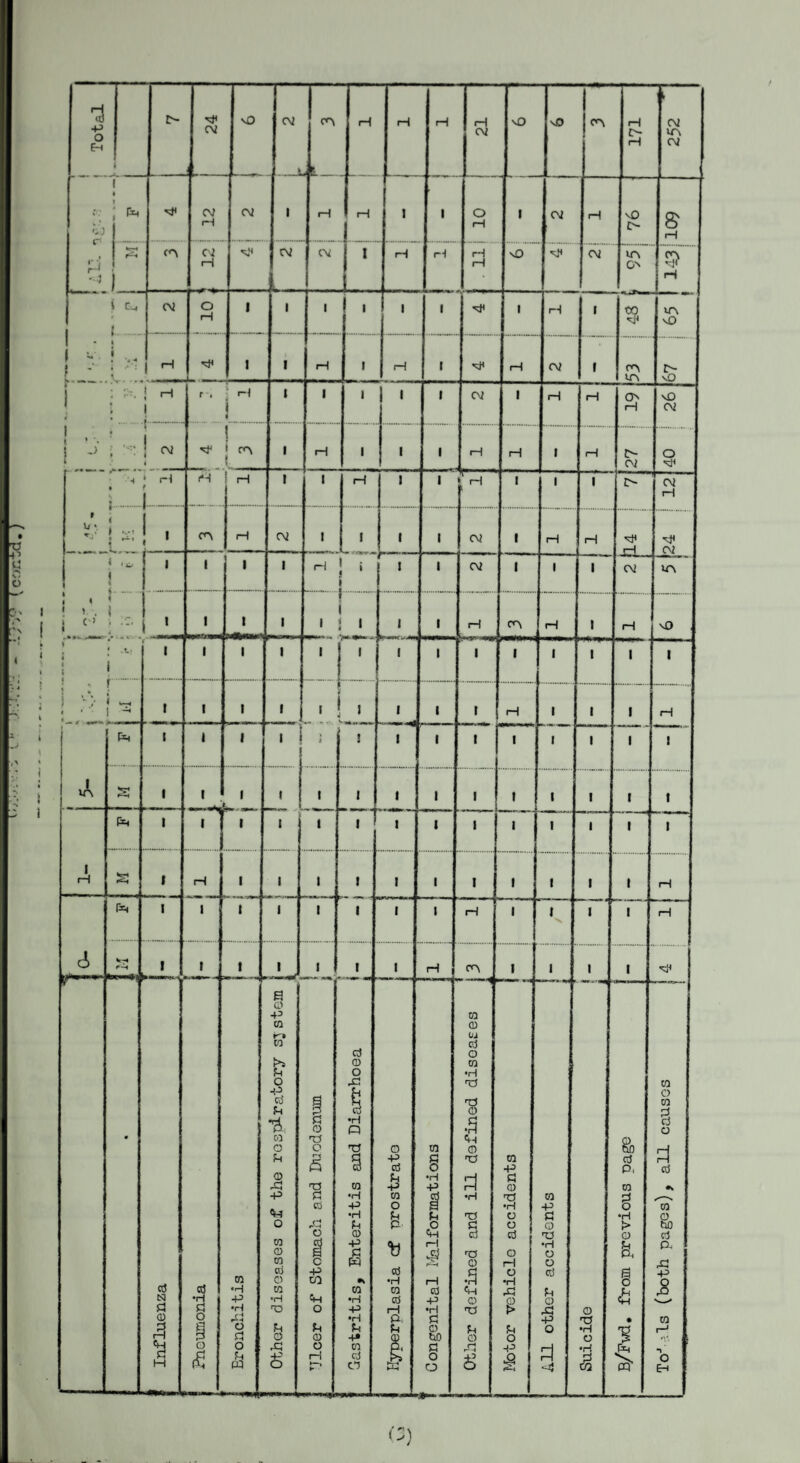 0- 1- 5- All ages Total
M F M F M F M F M F M F
Influenza - - - - - - - - - - - 1 2 1 1 2 3 4 7
Pneumonia - - 1 - - - - - - - 3 1 4 4 10 12 12 24
Bronchitis - - - - - - - - - - 1 1 3 1 - - 4 2 6
Other diseases of the respiratory system - - - - - - - - - - 2 - - - - - 2 - 2
Ulcer of Stomach and Duodenum - - - - - - - - - 1 - - 1 - 1 - 2 1 3
Gastritis, Enteritis and Diarrhoea - - - - - - - - - - - 1 - - - - - 1 1
Hyperplasia of prostrate - - - - - - - - - - - - - - 1 - 1 - 1
Congenital Malformations 1 - - - - - - - - - - - - - - - 1 - 1
Other defined and ill defined diseases 3 1 - - - - - - 1 2 2 1 1 2 4 4 11 10 21
Motor vehicle accidents - - - - - - 1 - 3 - - - 1 - 1 - 6 - 6
All other accidents - - - - - - - - 1 - 1 - - 1 2 1 4 2 6
Suicide - - - - - - - - - - 1 - 1 1 - - 2 1 3
B/Fwd. from previous page - - - - - - - - 1 2 14 7 27 19 53 48 95 76 171
Totals (both pages), all causes 4 1 1 - - - 1 - 6 5 24 12 40 26 67 65 143 109 252
(3)